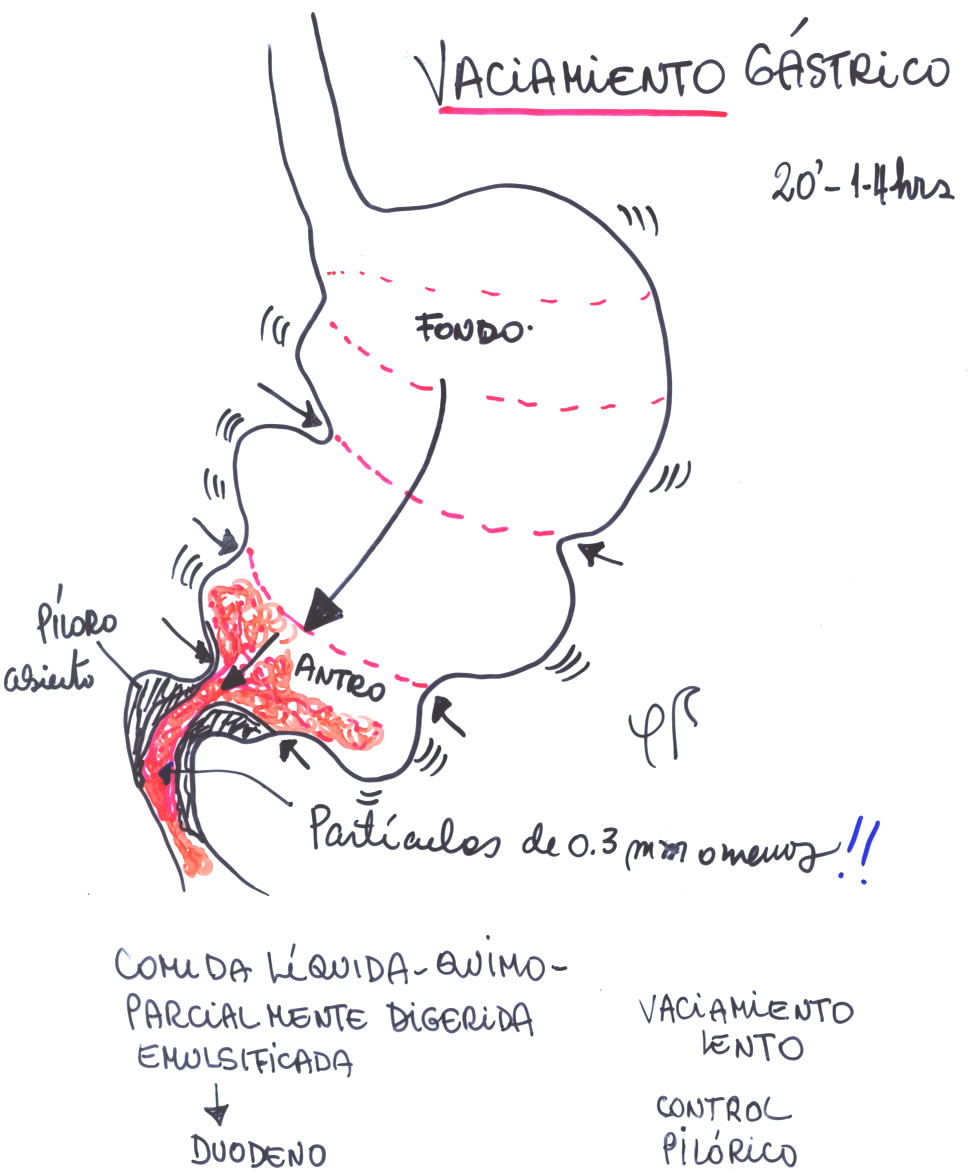 VACIAMIENTO GÁSTRICO
20'-1-4hrs
FONDO.
PÍLORO
abierto
ANTRO
Partículas de 0.3 mm o menos !!
COMIDA LÍQUIDA-QUIMO-
PARCIALMENTE DIGERIDA
EMULSIFICADA
DUODENO
VACIAMIENTO
LENTO
CONTROL
PILÓRICO